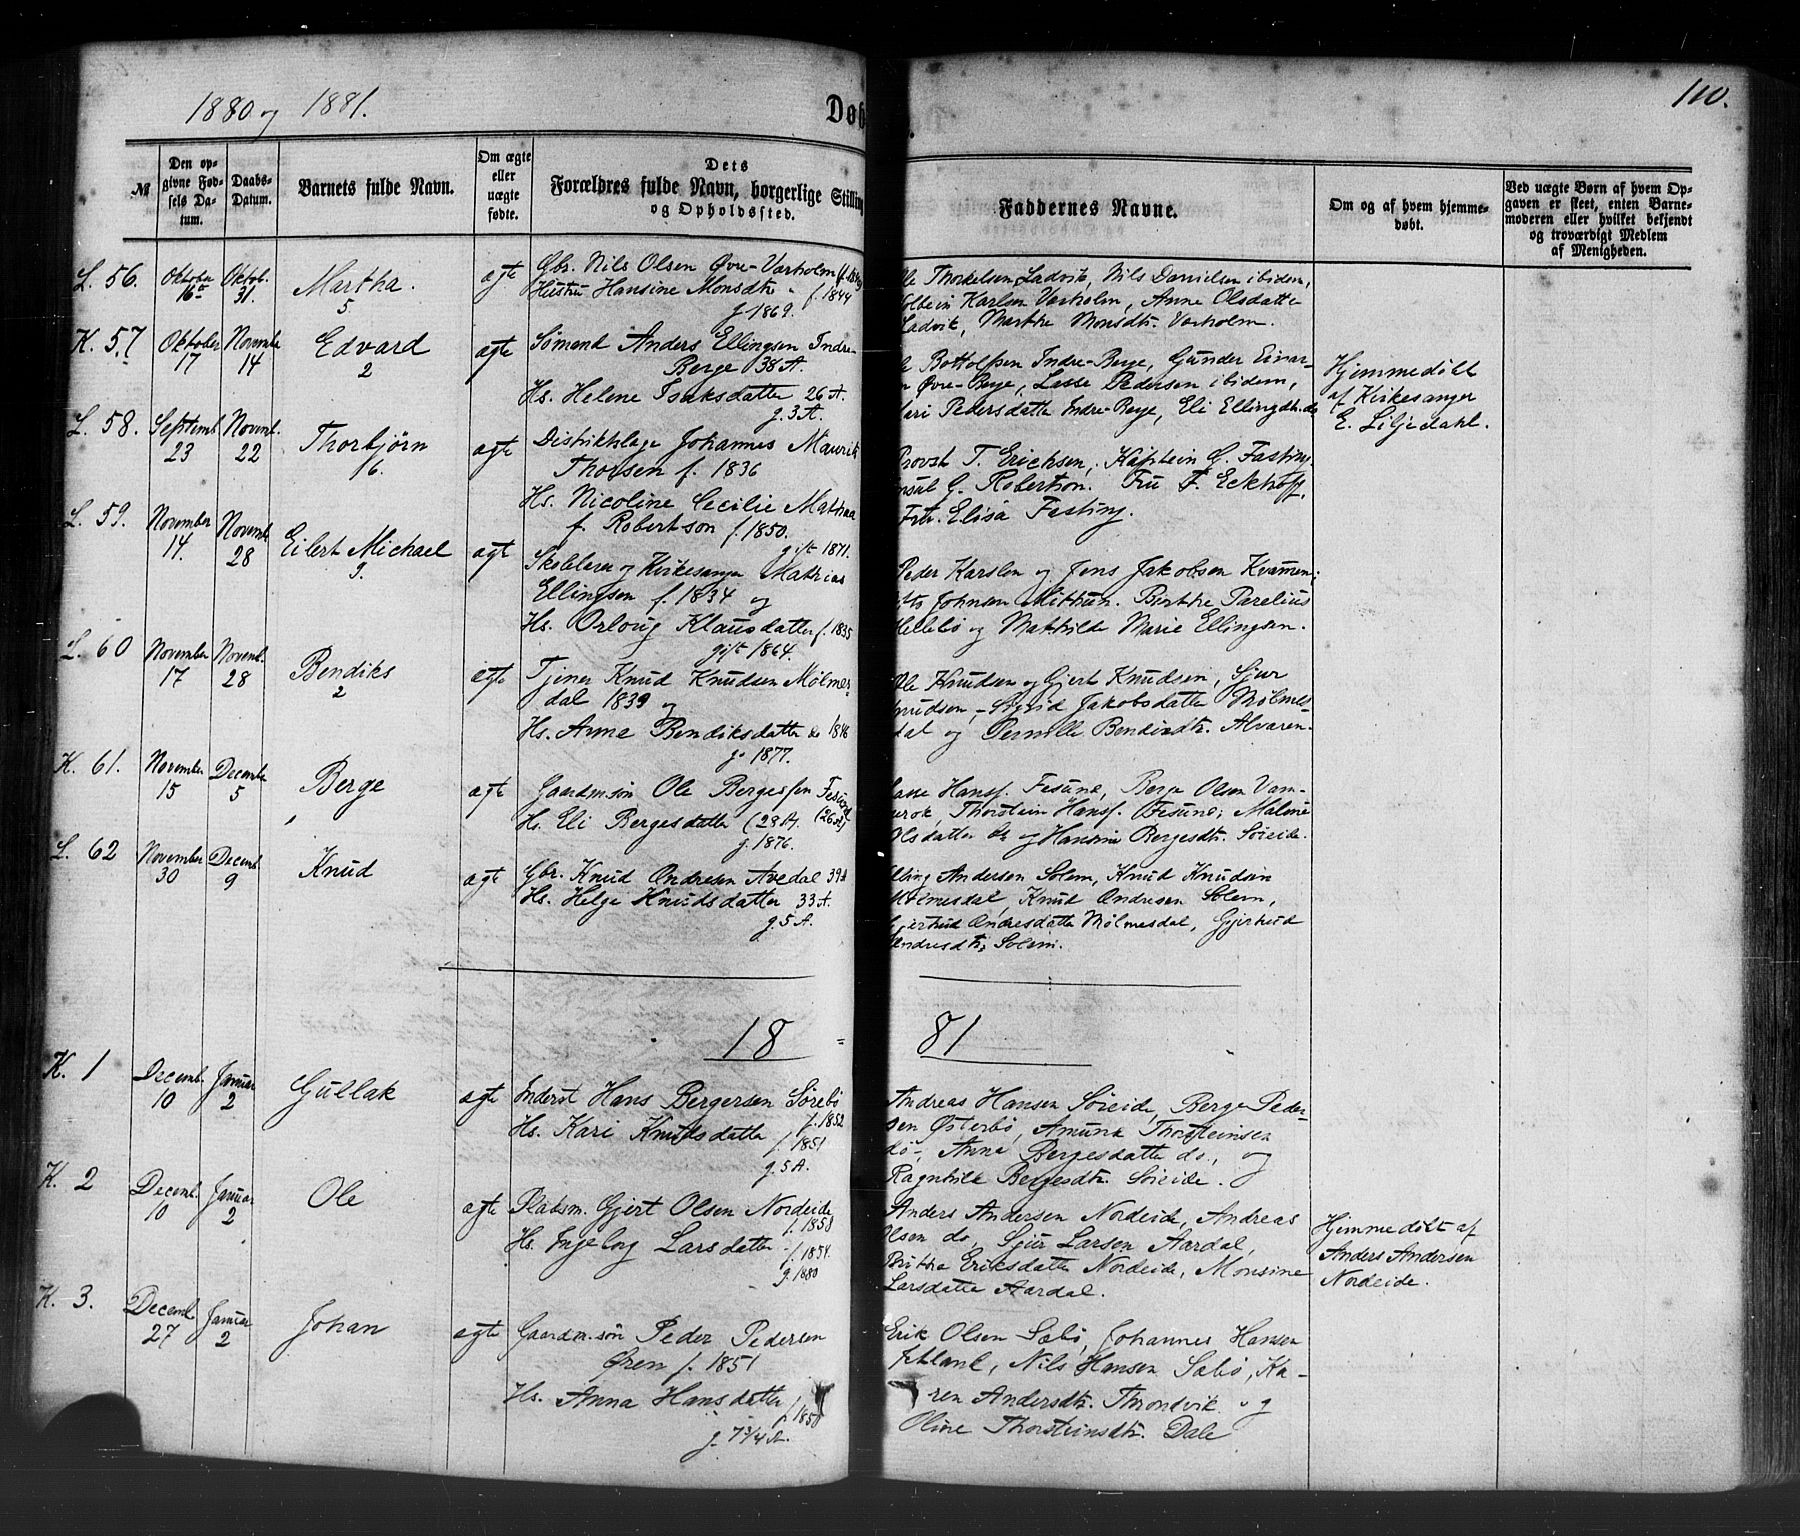 1880 og 1881.
Døb
110.
№
Den opgivne Fødsels Datum.
Daabs-Datum.
Barnets fulde Navn.
Om ægte eller uægte fødte.
Dets Forældres fulde Navn, borgerlige Stilling og Opholdssted.
Faddernes Navne.
Om og af hvem hjemmedøbt.
Ved uægte Børn af hvem Opgaven er skeet, enten Barnemoderen eller hvilket bekjendt og troværdigt Medlem af Menigheden.
L. 56.
Oktober 16
Oktob. 31.
Martha.
5
ægte
Gbr. Nils Olsen Øvre-Varholm
Hustru Hansine Monsdtr. f. 1844
g 1869.
Ole Thorkelsen Ladvik, Nils Danielsen ibidem,
Karlsen Varholm, Anne Olsdatter
Ladvik, Marthe Monsdtr. Varholm.
K. 57
Oktober 17
Novemb. 14
Edvard
2
ægte
Sømand Anders Ellingsen Indre-
Berge 38 A.
Hs. Helene Isaksdatter 26 A.
g. 3 A.
Bottolfsen Indre-Berge, Gunder Einar-
Øvre-Berge, Lasse Pedersen ibidem,
Kari Pedersdatter Indre-Berge, Eli Ellingdtr. do
Hjemmedøbt
af Kirkesanger
E. Liljedahl.
L. 58.
Septemb. 23
Novemb. 22
Thorbjørn
6.
ægte
Distriktslæge Johannes Mauritz
Thorsen f. 1836
Hs. Nicoline Cecilie Mathea
f. Robertson f. 1850.
gift 1871.
Provst T. Erichsen, Kaptein G. Fasting
Konsul G. Robertson. Fru F. Eckhoff,
Frk. Elisa Fasting.
L. 59.
November 14.
Novemb. 28
Eilert Michael
9.
ægte
Skolelærer og Kirkesanger Mathias
Ellingsen f. 1834 og
Hs. Orloug Klausdatter f. 1835
gift 1864.
Peder Karslen og Jens Jakobsen Kvammen;
Johnsen Mittun. Berthe Parelius
Hellebø og Mathilde Marie Ellingsen.
L. 60
November 17
Novemb. 28
Bendiks
2
ægte
Tjener Knud Knudsen Mølmes-
dal 1839 og
Hs. Anne Bendiksdatter do 1848
g. 1877.
Ole Knudsen og Gjert Knudsen, Sjur
Knudsen, Sigrid Jakobsdatter Mølmes-
dal og Pernille Bendixdtr. Alvaren.
K. 61.
November 15
Decembr 5
Berge
ægte
Gaardmsøn Ole Bergessen Fesund
(26 A)
Hs. Eli Bergesdatter (28 A).
g. 1876.
Lasse Hansf. Fesund, Berge Olsen Vam-
Thorstein Hansf. Fesund; Malene
Olsdatter do og Hansine Bergesdtr. Søreide.
L. 62
November 30
Decemb. 9
Knud
ægte
Gbr. Knud Andresen Avedal 39 A
Hs. Helge Knudsdatter 33 A.
g. 5 A.
Elling Andersen Solem, Knud Knudsen
Mølmesdal, Knud Andresen Solem,
Gjertrud Andresdatter Mølmesdal, Gjertrud
Andresdtr. Solem.
18 = 81
K. 1
Decemb. 10
Januar 2
Gullak
ægte
Inderst Hans Bergersen Sørebø
f. 1852
Hs. Kari Knudsdatter f 1851
g. 5 A.
Andreas Hansen Søreide, Berge Peder-
sen Østerbø, Amund Thorsteinsen
do-, Anna Bergesdatter do., og
Ragnhild Bergesdtr. Søreide.
K. 2
Decemb. 10
Januar 2
Ole
ægte
Pladsm. Gjert Olsen Nordeide
f. 1858
Hs. Ingeborg Larsdatter f 1854.
g. 1880
Anders Andersen Nordeide, Andreas
Olsen do, Sjur Larsen Aardal,
Britha Eriksdatter Nordeide, Monsine
Larsdatter Aardal.
Hjemmedøbt af
Anders Andersen
Nordeide.
K. 3.
Decemb. 27
Januar 2
Johan
ægte
Gaardm.søn Peder Pedersen
Øren f. 1851
Hs. Anna Hansdatter f 1850
g. 7 3/4 A.
Erik Olsen Sæbø, Johannes Hansen
Nils Hansen Sæbø, Ka-
ren Andersdtr. Throndvik og
Oline Thorsteinsdtr. Dale